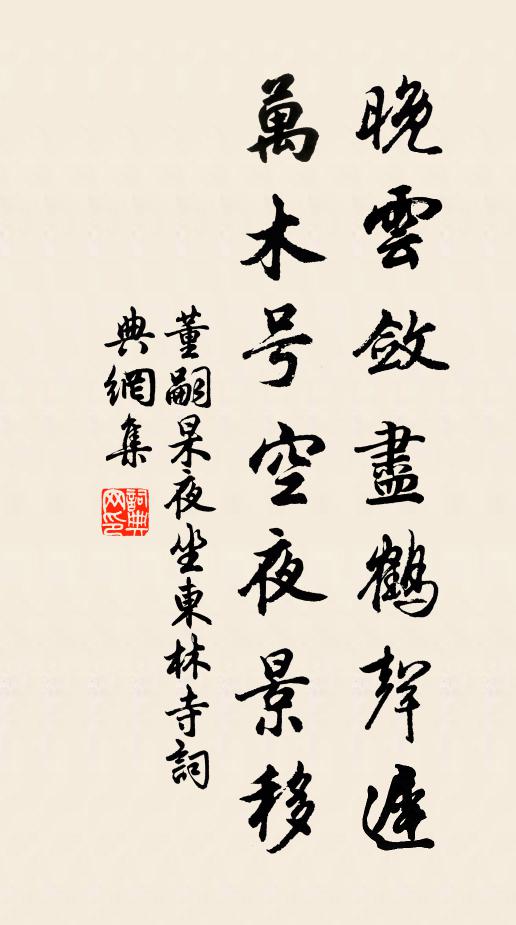 晚雲斂盡鶴聲遲
萬木号空夜景移
董嗣杲夜坐東林寺詞
典網集
詞典网印